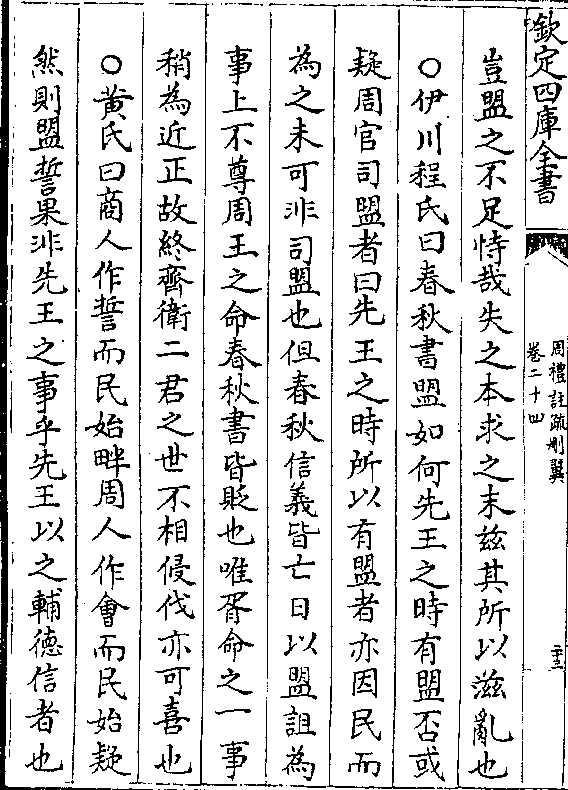 欽定四庫全書
周禮註疏刪翼
卷二十四
二十三
豈盟之不足恃哉失之本求之末兹其所以滋亂也
○伊川程氏曰春秋書盟如何先王之時有盟否或
疑周官司盟者曰先王之時所以有盟者亦因民而
為之未可非司盟也但春秋信義皆亡日以盟詛為
事上不尊周王之命春秋書皆貶也唯胥命之一事
稍為近正故終齊衛二君之世不相侵伐亦可喜也
○黃氏曰商人作誓而民始畔周人作會而民始疑
然則盟誓果非先王之事乎先王以之輔德信者也